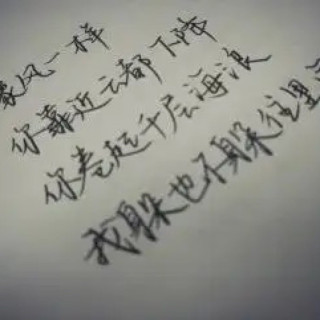 暴风一样
你靠近云都下降
你卷起千层海浪
我躲也不躲往里